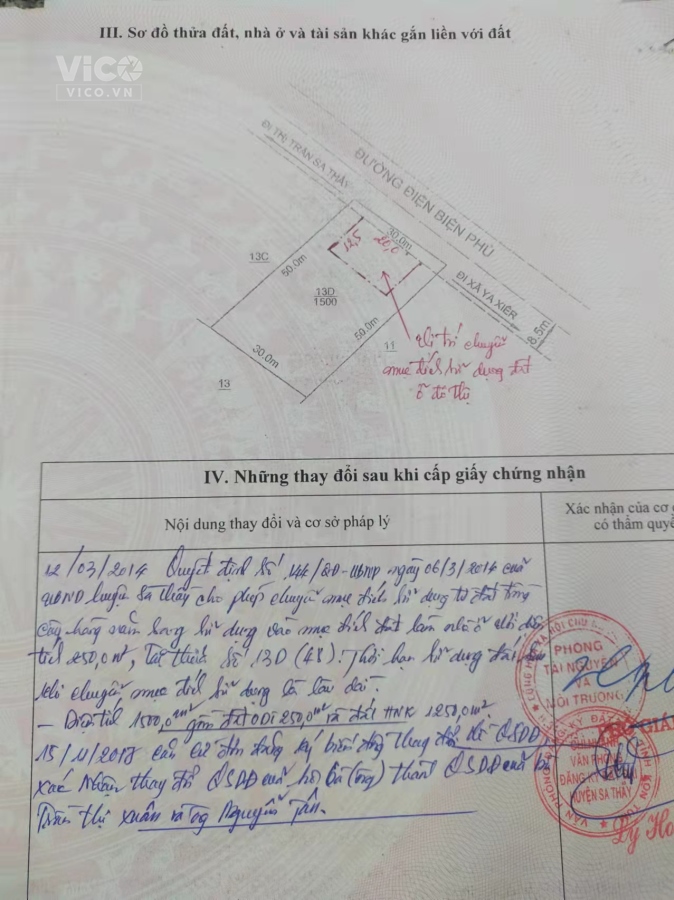 III. Sơ đồ thửa đất, nhà ở và tài sản khác gắn liền với đất
ViCO
VICO.VN
ĐI THỊ TRẤN SA THẦY
ĐƯỜNG ĐIỆN BIÊN PHỦ
30.0m
12,5
20,0
13C
50.0m
ĐI XÃ YA XIÊR
13D
1500
8.5m
50.0m
11
30.0m
13
Vị trí chuyển
mục đích sử dụng đất
ở đô thị
IV. Những thay đổi sau khi cấp giấy chứng nhận
Nội dung thay đổi và cơ sở pháp lý
Xác nhận của cơ
có thẩm quyề
12/03/2014 Quyết định số 144/QĐ-UBND ngày 06/3/2014 của
UBND huyện Sa Thầy cho phép chuyển mục đích sử dụng từ đất trồng
cây hàng năm sang sử dụng vào mục đích đất làm nhà ở với diện
tích 250,0m², tại thửa số 13D (48). Thời hạn sử dụng đất
khi chuyển mục đích sử dụng là lâu dài.
- Diện tích 1500,0m² gồm đất ODT 250,0m² và đất HNK 1250,0m²
15/11/2017 căn cứ đơn đăng ký biến động thay đổi QSDĐ
xác nhận thay đổi QSDĐ của hộ bà (ông) thành QSDĐ của bà
Trần Thị Xuân và ông Nguyễn Tân.
PHÒNG
TÀI NGUYÊN
VÀ
MÔI TRƯỜNG
CHI NHÁNH
VĂN PHÒNG
ĐĂNG KÝ ĐẤT ĐAI
HUYỆN SA THẦY
Lý Ho